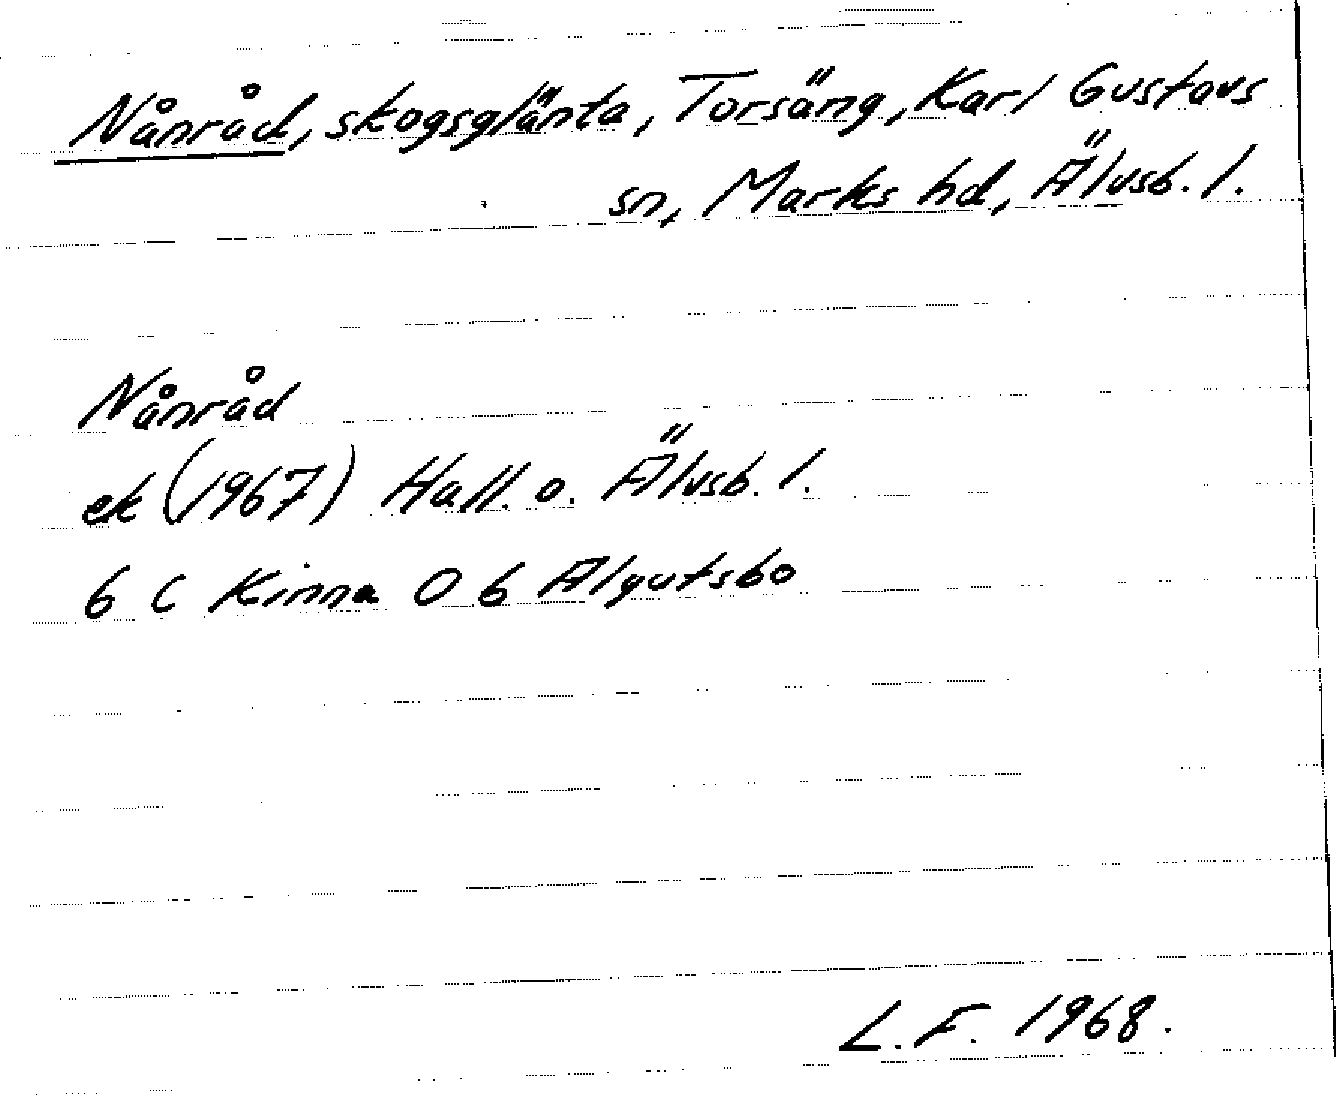 Nånråd, skogsglänta, Torsäng, Karl Gustavs
sn, Marks hd, Älvsb. l.
Nånråd
ek (1967) Hall. o. Älvsb. l.
6 C Kinna 0 b Algutsbo
L. F. 1968.